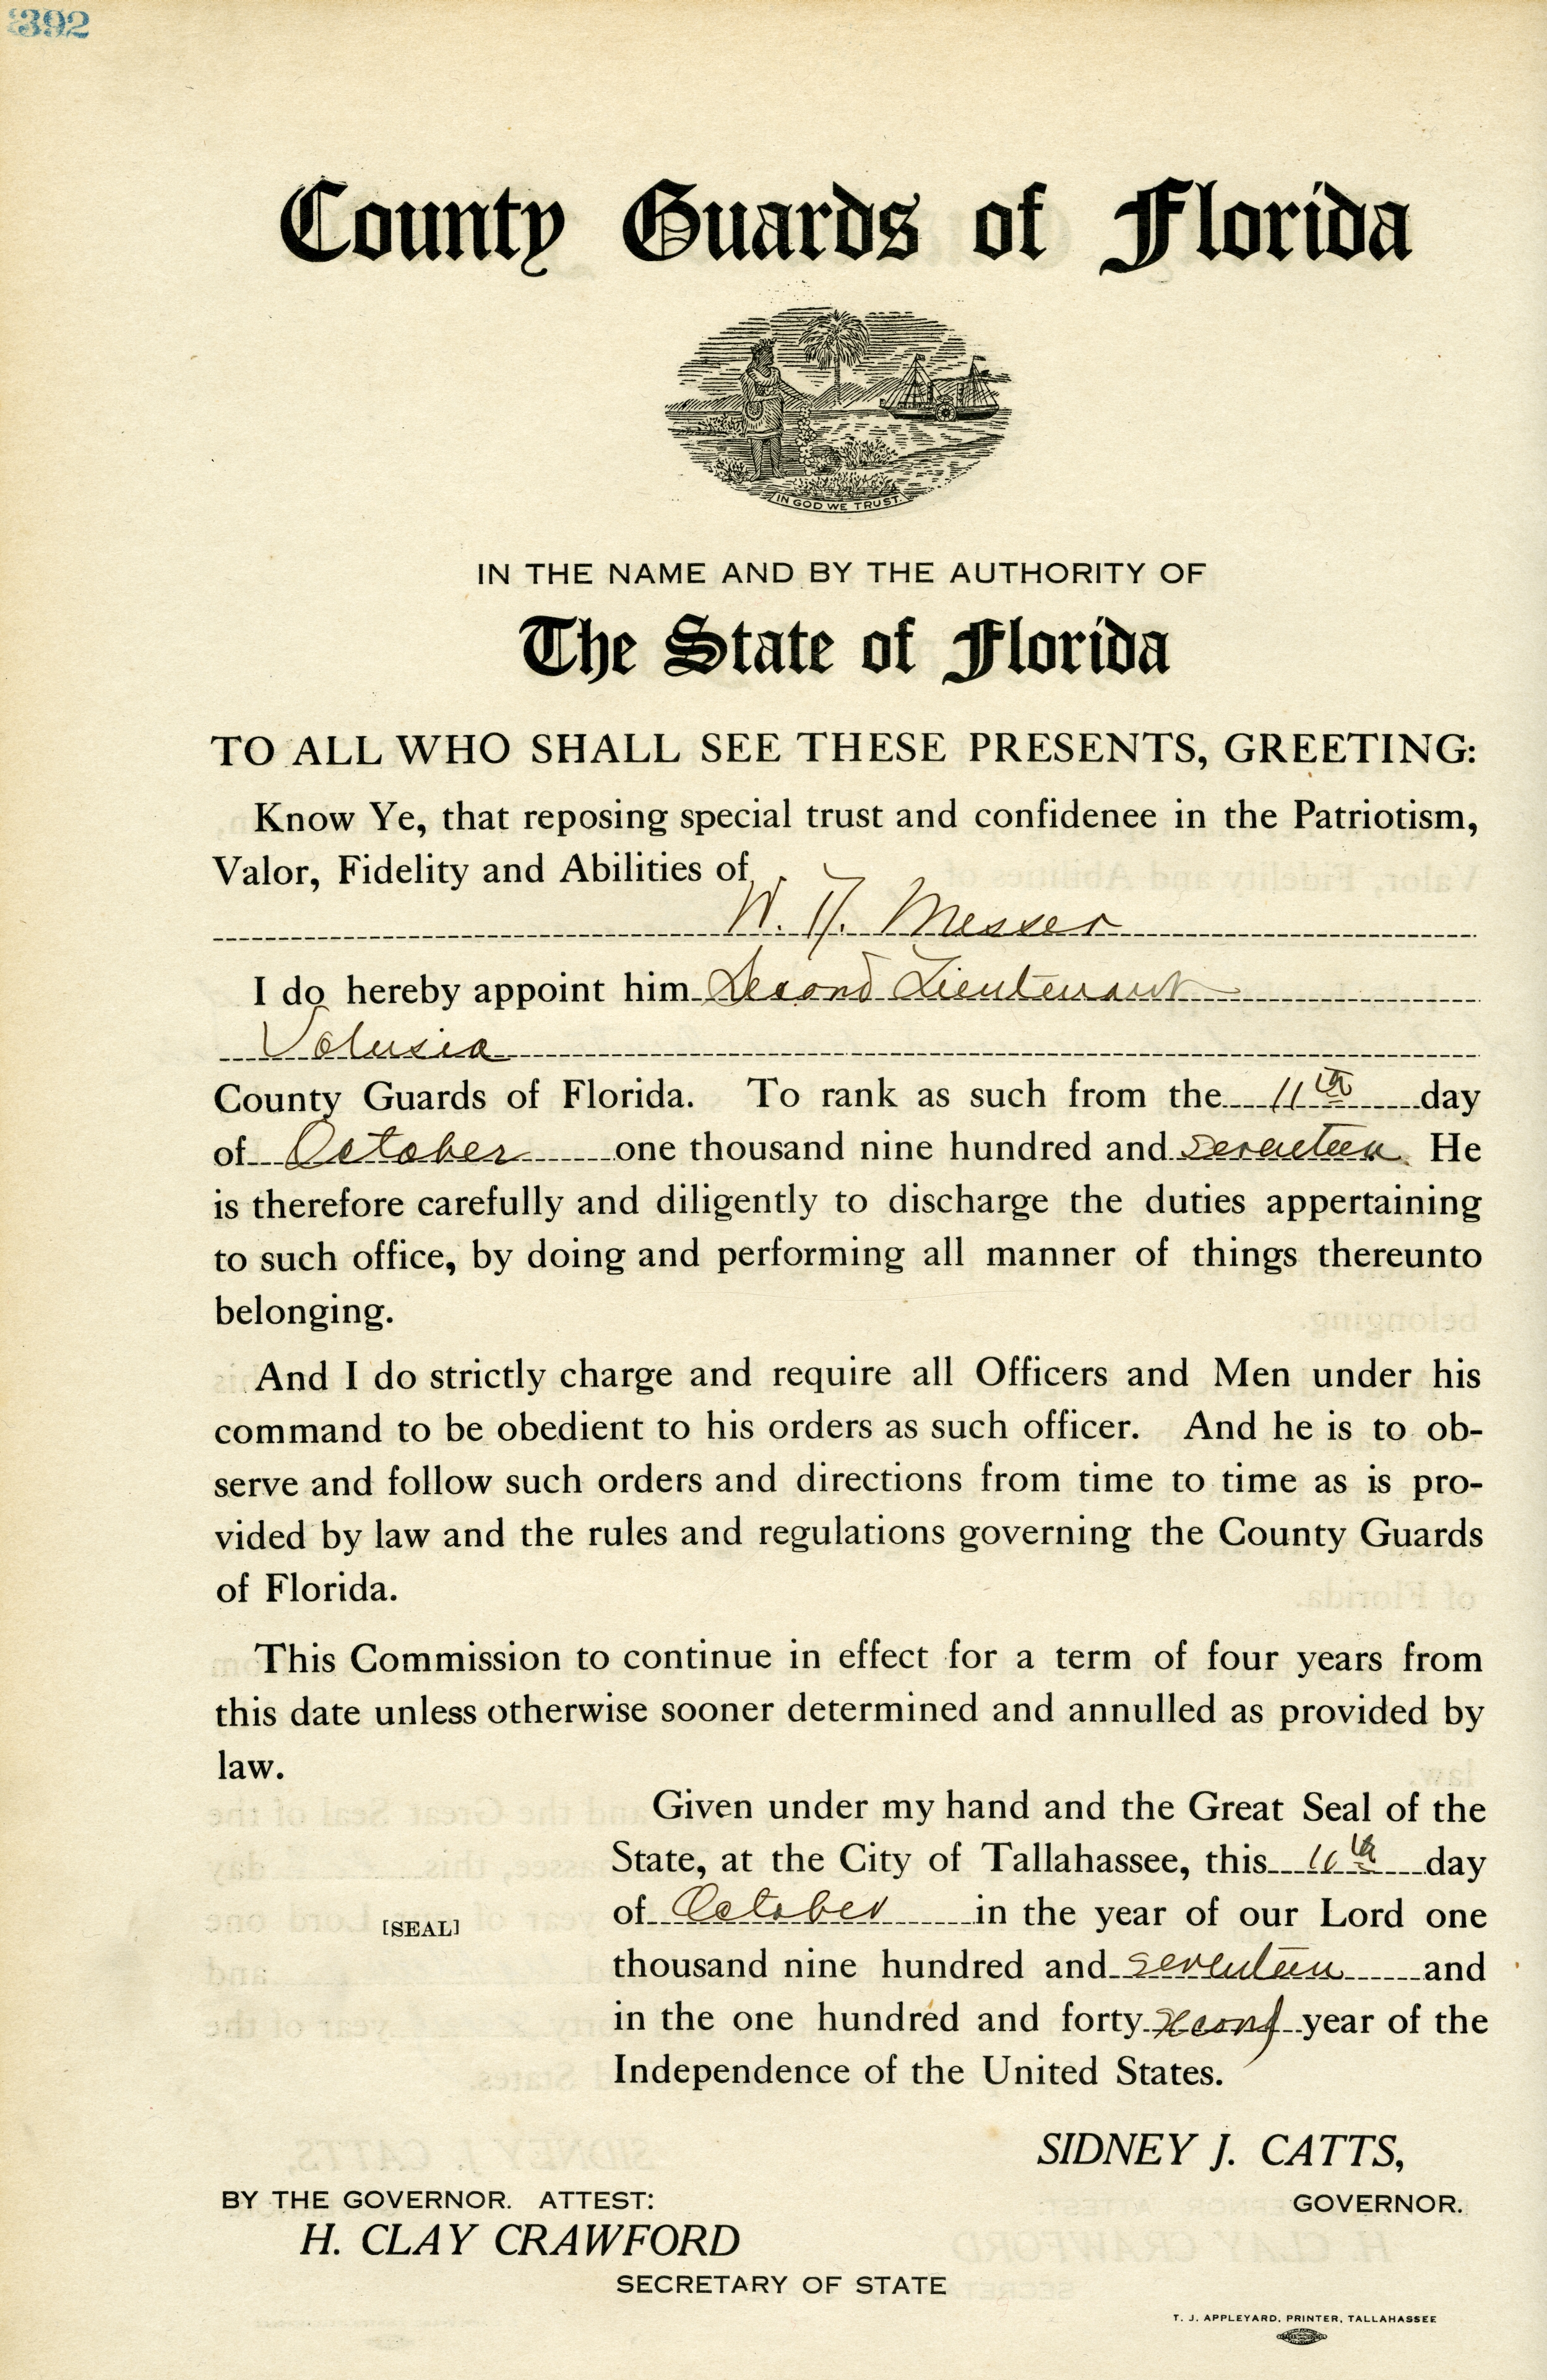 392
County Guards of Florida
IN GOD WE TRUST.
IN THE NAME AND BY THE AUTHORITY OF
The State of Florida
TO ALL WHO SHALL SEE THESE PRESENTS, GREETING:
Know Ye, that reposing special trust and confidenee in the Patriotism,
Valor, Fidelity and Abilities of
W. H. Messer
I do hereby appoint him Second Lieutenant
Volusia
County Guards of Florida. To rank as such from the 11th day
of October one thousand nine hundred and seventeen. He
is therefore carefully and diligently to discharge the duties appertaining
to such office, by doing and performing all manner of things thereunto
belonging.
And I do strictly charge and require all Officers and Men under his
command to be obedient to his orders as such officer. And he is to ob-
serve and follow such orders and directions from time to time as is pro-
vided by law and the rules and regulations governing the County Guards
of Florida.
This Commission to continue in effect for a term of four years from
this date unless otherwise sooner determined and annulled as provided by
law.
Given under my hand and the Great Seal of the
State, at the City of Tallahassee, this 11th day
of October in the year of our Lord one
[SEAL]
thousand nine hundred and seventeen and
in the one hundred and forty second year of the
Independence of the United States.
SIDNEY J. CATTS,
BY THE GOVERNOR. ATTEST:
GOVERNOR.
H. CLAY CRAWFORD
SECRETARY OF STATE
T. J. APPLEYARD, PRINTER, TALLAHASSEE